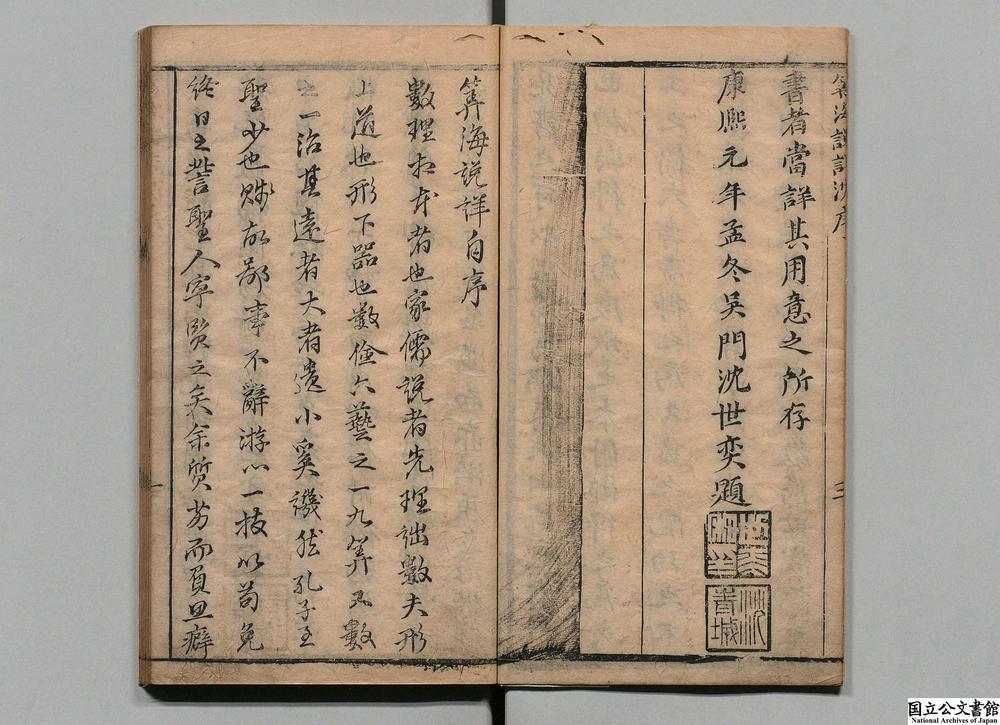 筭海說詳沈序
三
書者當詳其用意之所存
康熙元年孟冬吳門沈世奕題
沈
書城
筭海說詳自序
數理相成者也家儒說者先理詘數夫形
上道也形下器也數僅六藝之一九筭又數
之一治其遠者大者遺小奚譏然孔子至
聖少也賤故鄙事不辭游心一技以苟免
終日之訾聖人寧賢之矣余質劣而負且癖
一
国立公文書館
National Archives of Japan